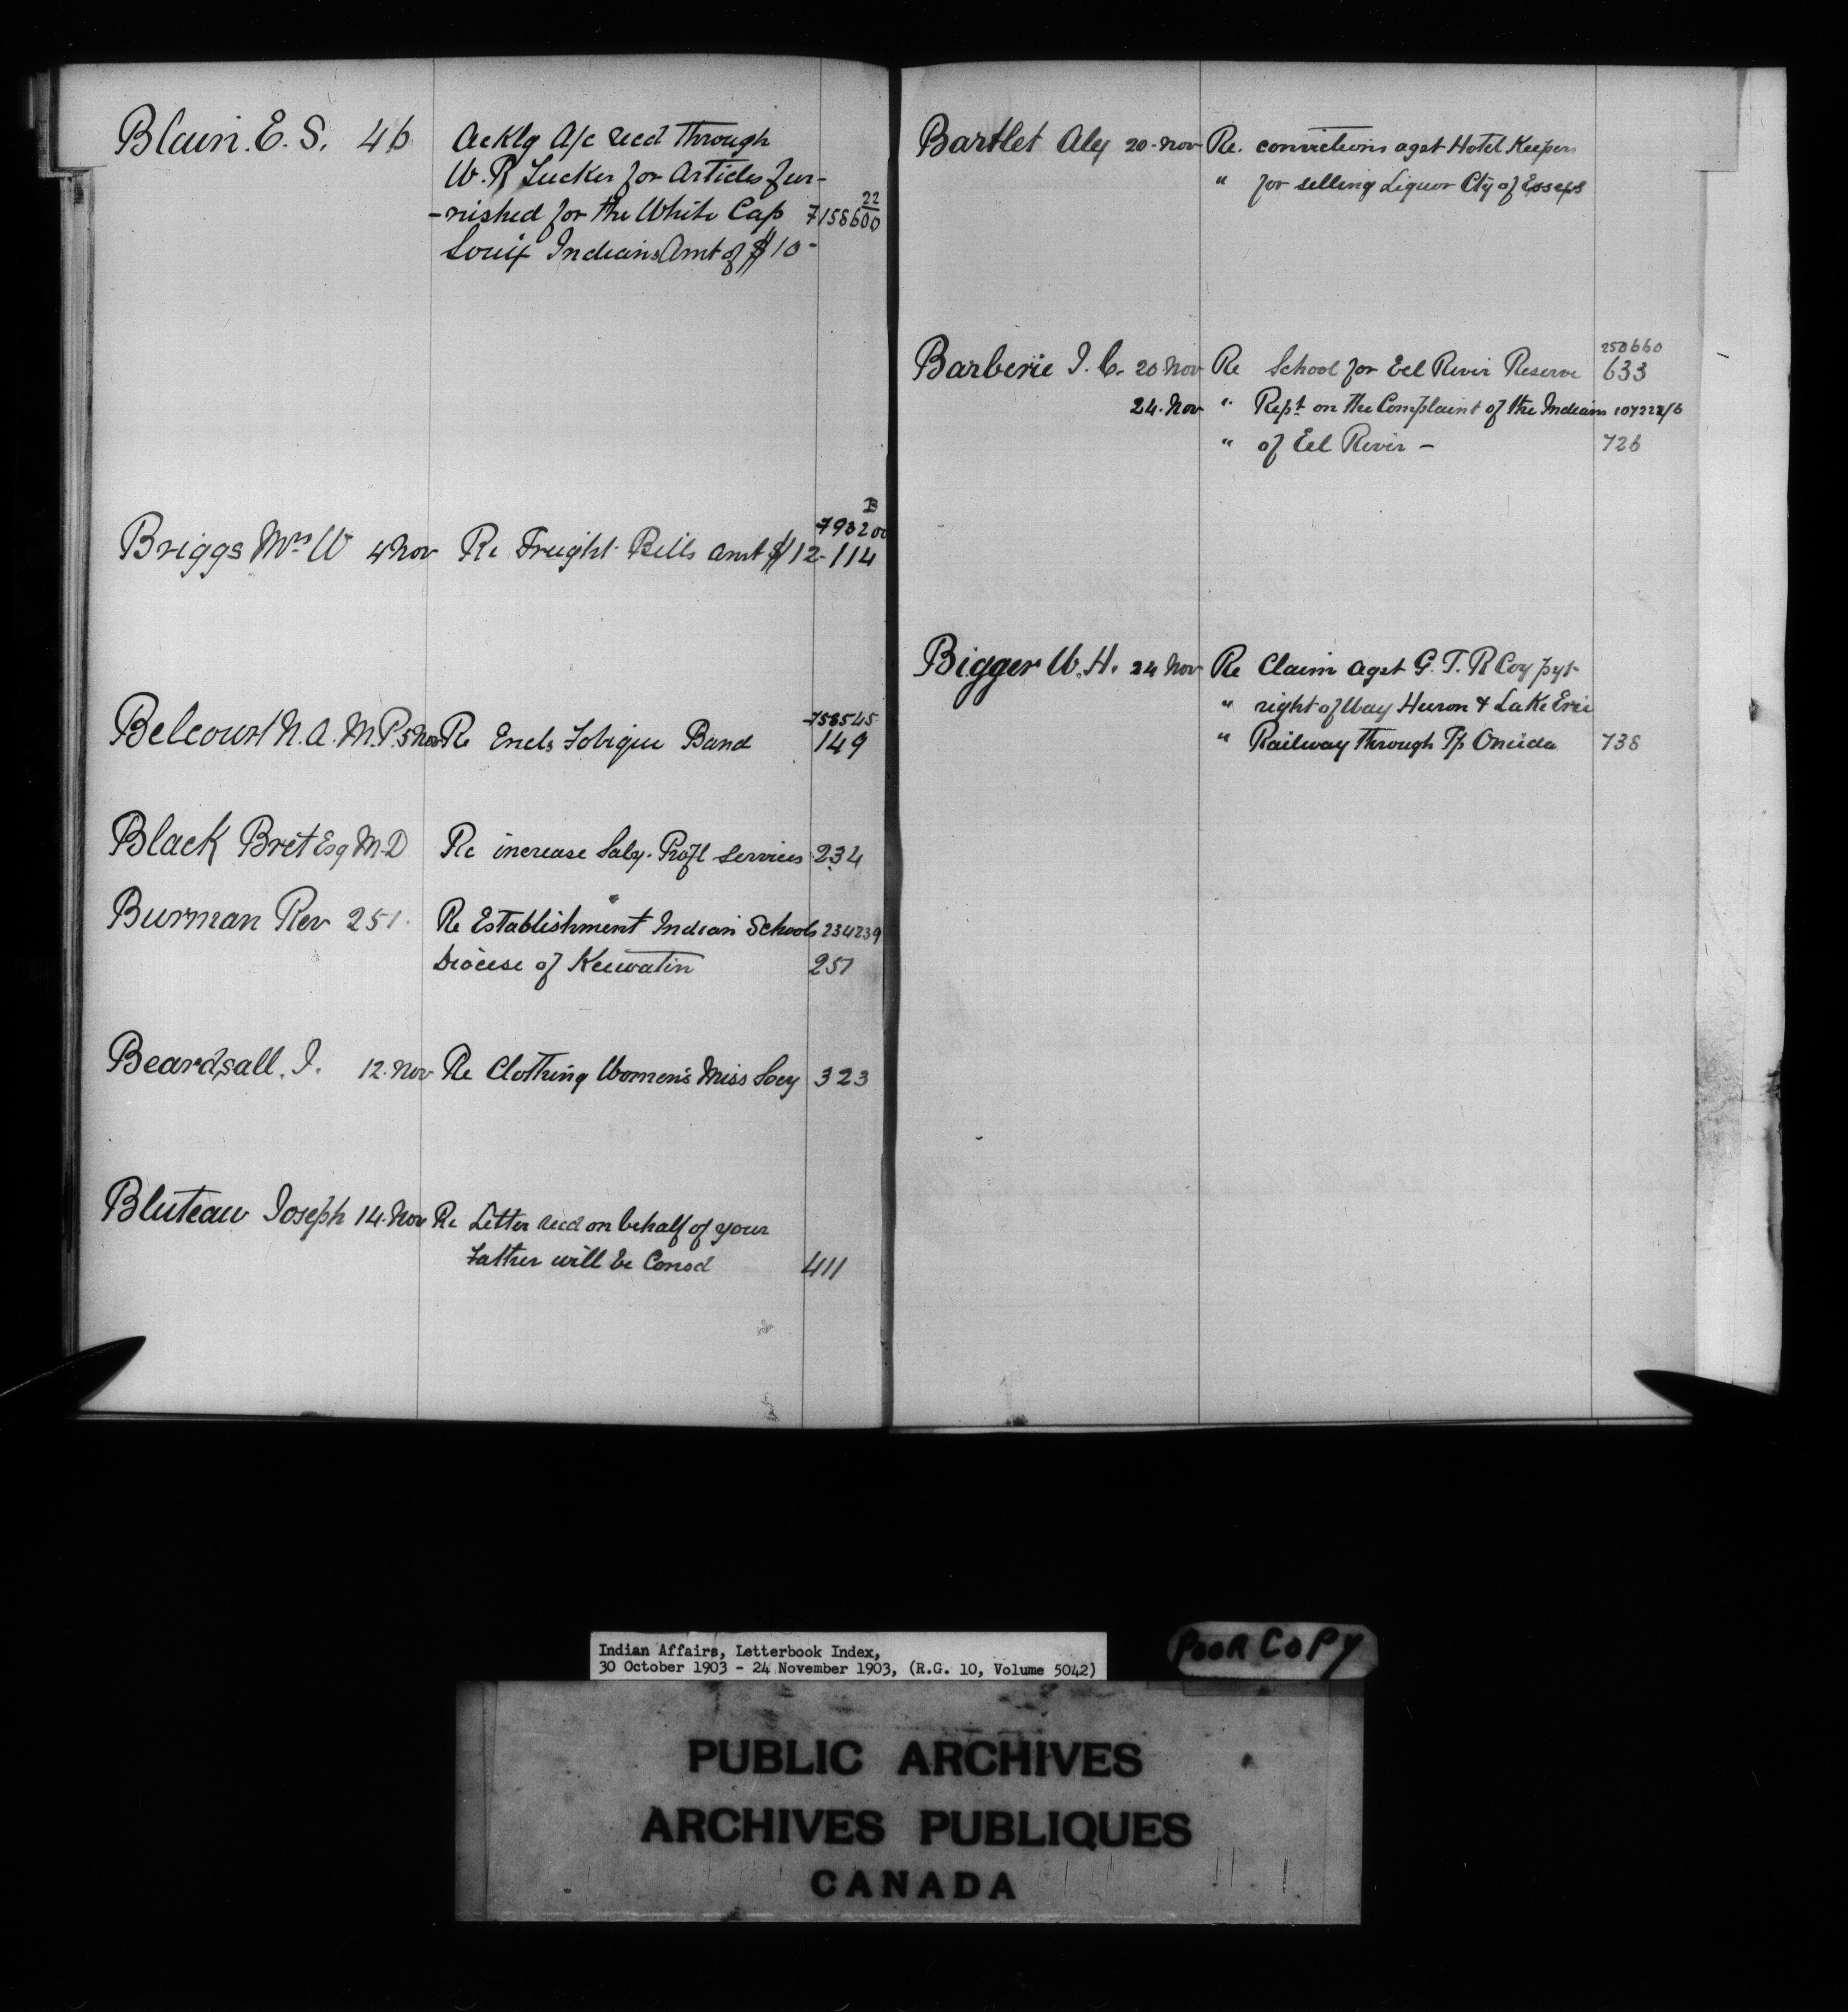 Blain. E. S. 46 Acklg A/c Recd Through
W. R Tucker for Articles fur-
-nished for the White Cap 7158600 22
Souix Indians Amt of $10-
B
793200
Briggs Mrs W 4 Nov Re Freight Bills amt $12- 114
758545
Belcourt N. A. M.P. 5 Nov Re Encls Tobique Band 149
Black Bret Esq M.D Re increase Saly. Profl services 234
Burman Rev 251. Re Establishment Indian Schools 234239
Diocese of Keewatin 251
Beardsall. J. 12. Nov Re Clothing Women's Miss Socy 323
Bluteau Joseph 14. Nov Re Letter Recd on behalf of your
Father will be Consd 411
Bartlet Alex 20- Nov Re. convictions agst Hotel Keepers
" for selling Liquor Cty of Essex
250660
Barberie J. C. 20 Nov Re School for Eel River Reserve 633
24. Nov " Rept on the Complaint of the Indians 107222/6
" of Eel River - 726
Bigger W. H. 24 Nov Re Claim agst G. T. R Coy pyt
" right of Way Huron & Lake Erie
" Railway Through Tp Oneida 738
Indian Affairs, Letterbook Index,
30 October 1903 - 24 November 1903, (R.G. 10, Volume 5042)
POOR COPY
PUBLIC ARCHIVES
ARCHIVES PUBLIQUES
CANADA